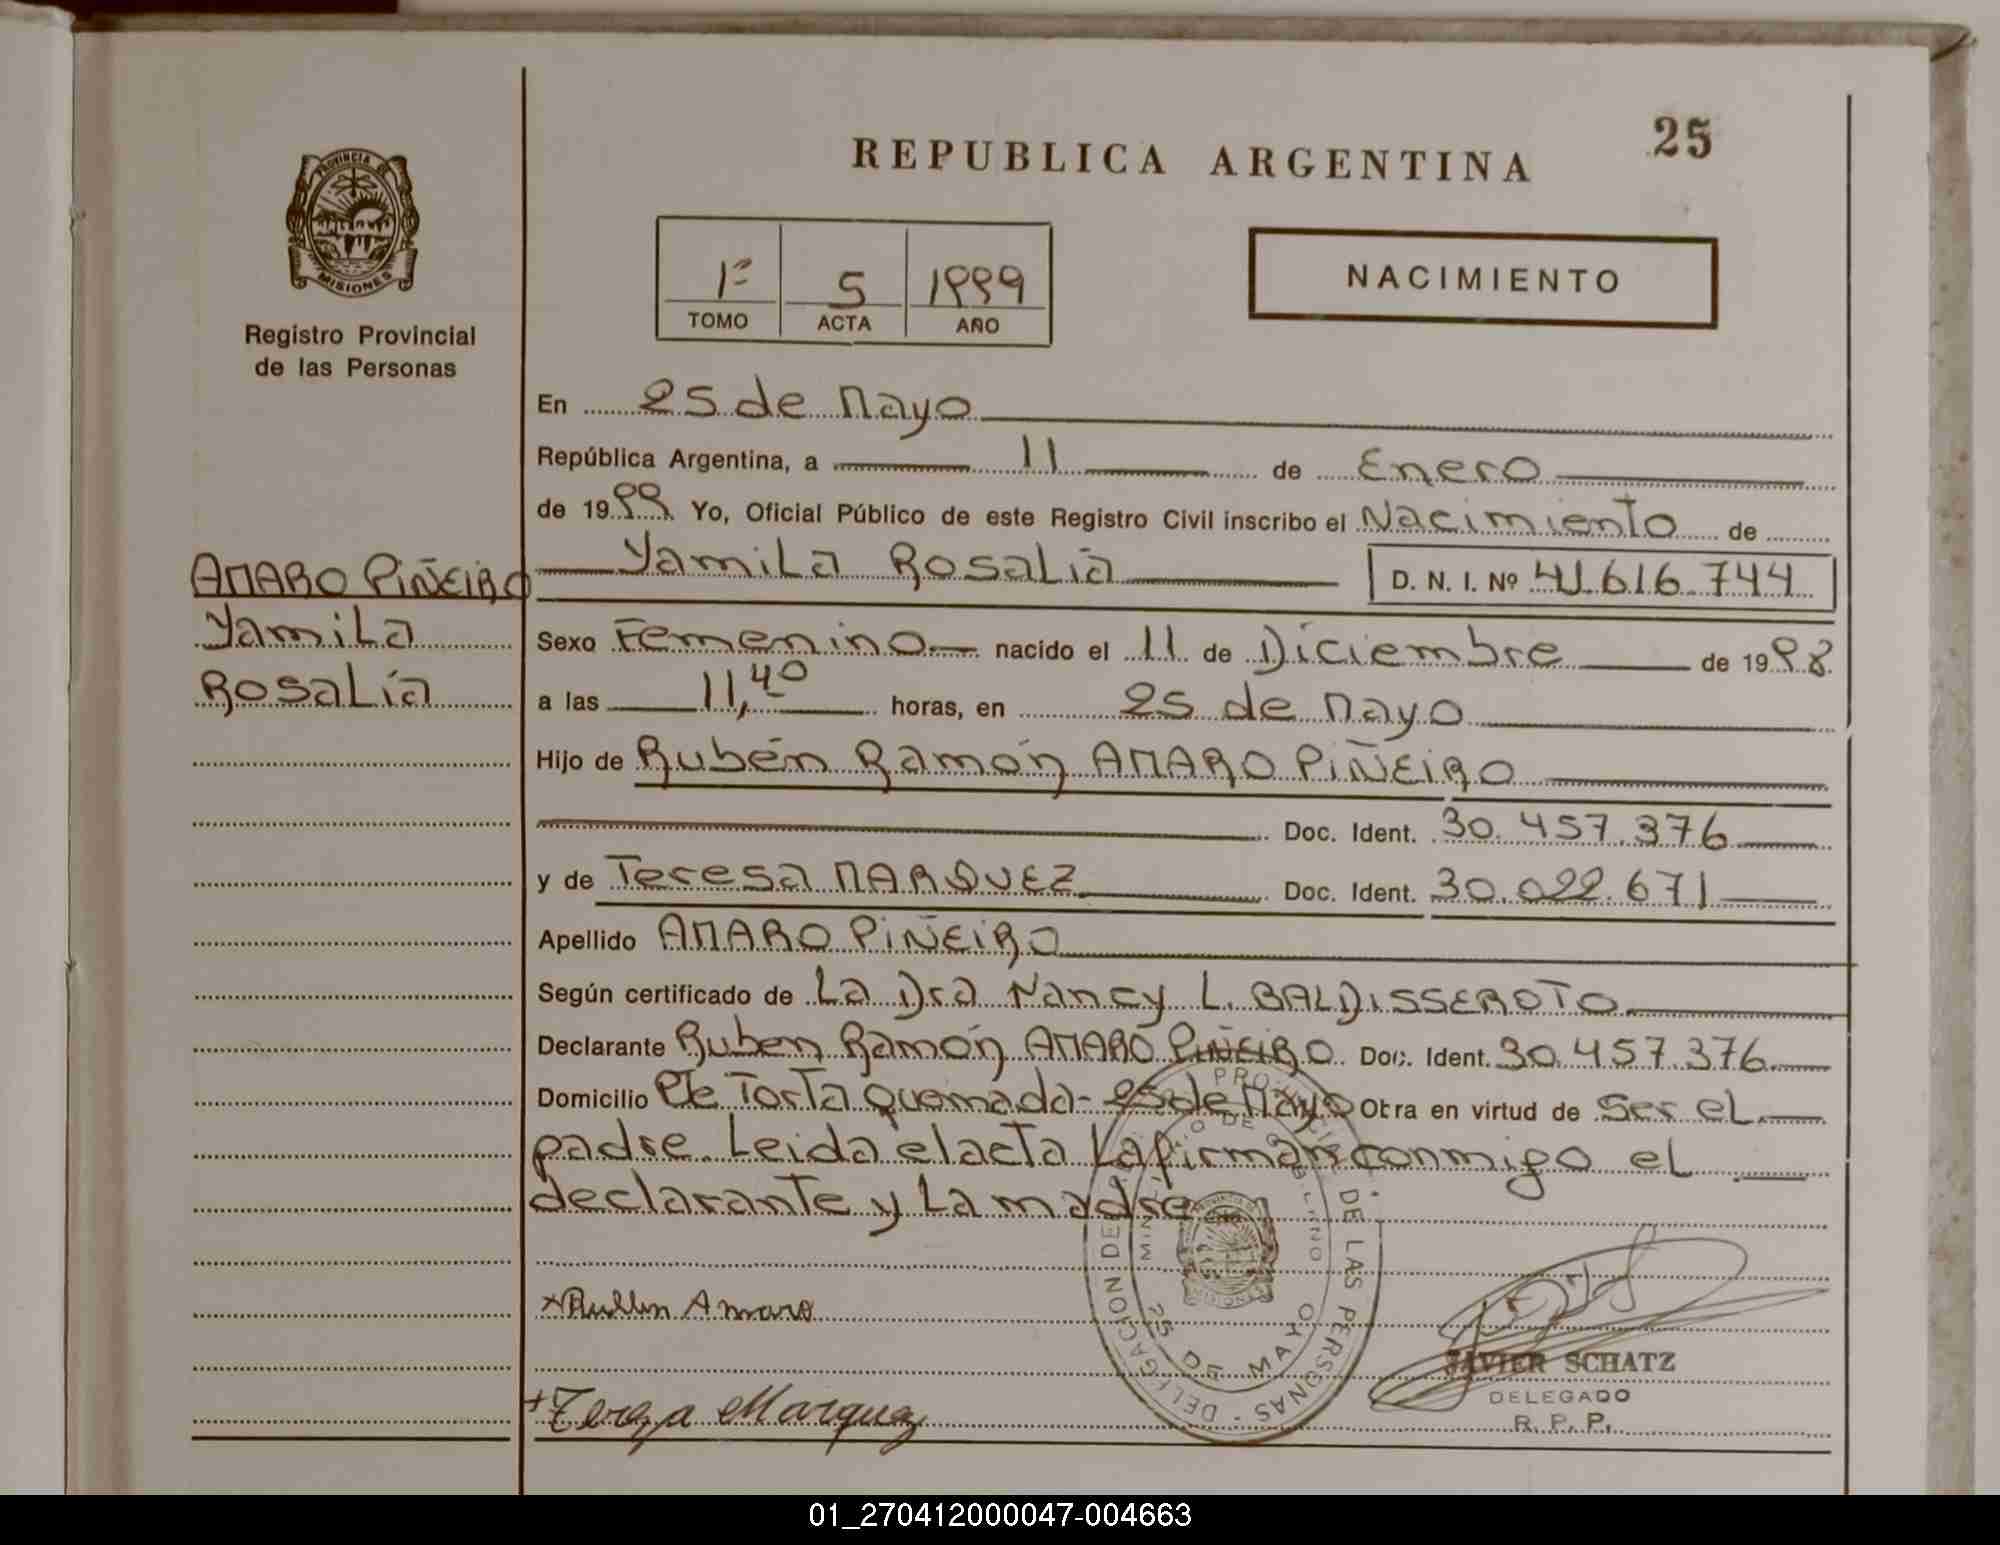 25
REPUBLICA ARGENTINA
PROVINCIA DE
MISIONES
Registro Provincial
de las Personas
1º 5 1999
TOMO ACTA AÑO
NACIMIENTO
En 25 de Mayo
República Argentina, a 11 de Enero
de 1999 Yo, Oficial Público de este Registro Civil inscribo el Nacimiento de
Yamila Rosalia D. N. I. Nº 41.616.744
AMARO PIÑEIRO
Yamila
Rosalía
Sexo Femenino nacido el 11 de Diciembre de 1998
a las 11,40 horas, en 25 de Mayo
Hijo de Rubén Ramón AMARO PIÑEIRO
Doc. Ident. 30.457.376
y de Teresa MARQUEZ Doc. Ident. 30.022.671
Apellido AMARO PIÑEIRO
Según certificado de La Dra Nancy L. BALDISSEROTO
Declarante Ruben Ramón AMARO PIÑEIRO Doc. Ident. 30.457.376
Domicilio Pte Torta Quemada - 25 de Mayo Obra en virtud de Ser el
padre. Leida el acta La firman conmigo el
declarante y La madre
DELEGACION DE LAS PERSONAS
25 DE MAYO
Rubén Amaro
Tereza Marquez
JAVIER SCHATZ
DELEGADO
R. P. P.
01_270412000047-004663